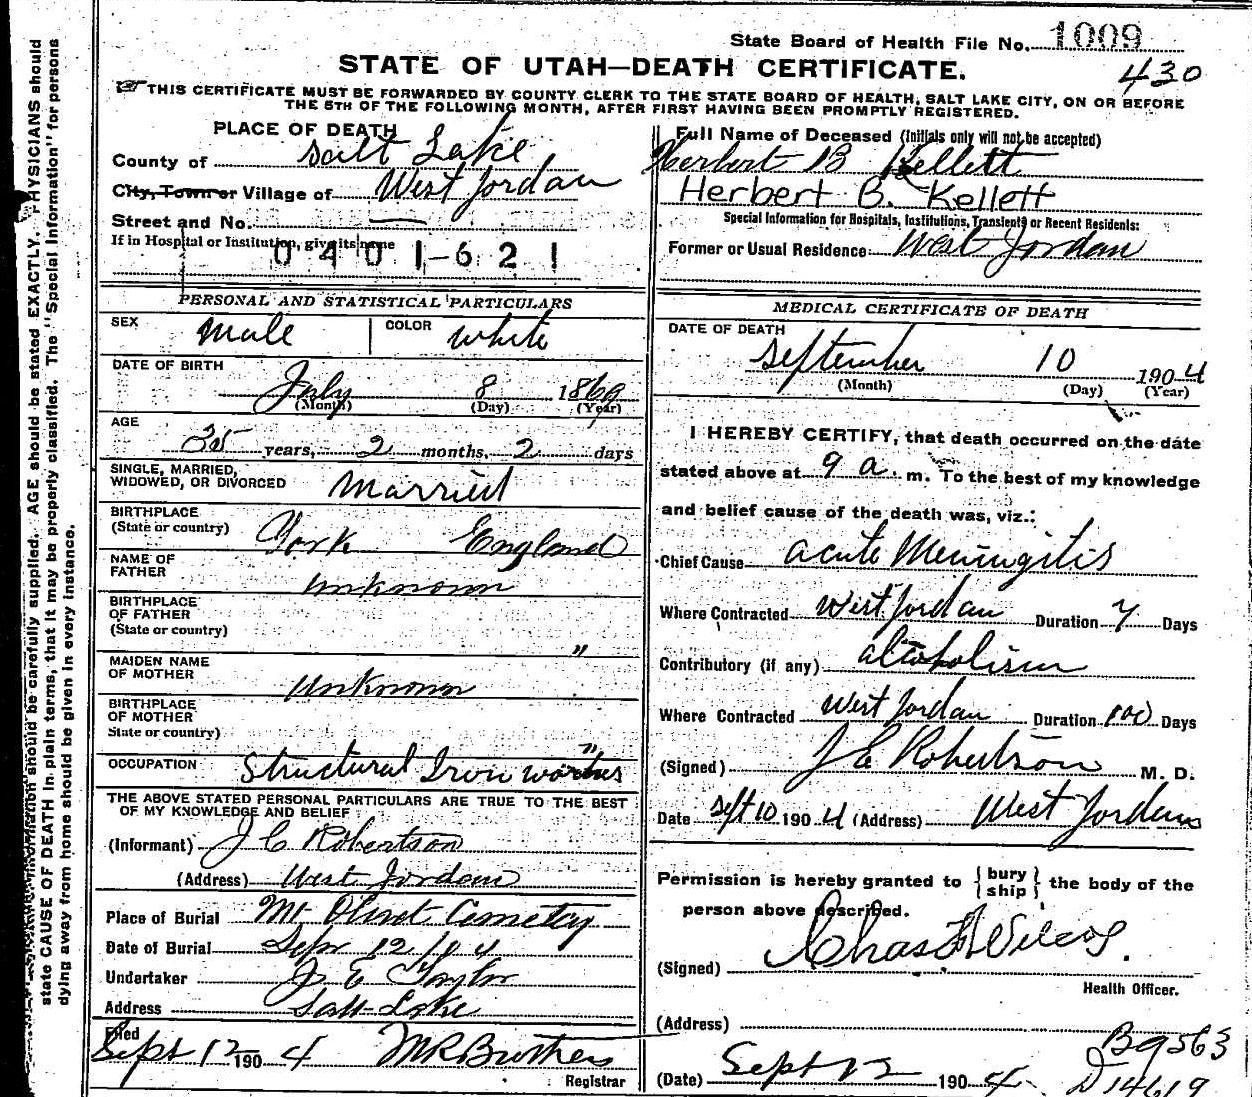 State Board of Health File No. 1009
430
STATE OF UTAH—DEATH CERTIFICATE.
THIS CERTIFICATE MUST BE FORWARDED BY COUNTY CLERK TO THE STATE BOARD OF HEALTH, SALT LAKE CITY, ON OR BEFORE
THE 5TH OF THE FOLLOWING MONTH, AFTER FIRST HAVING BEEN PROMPTLY REGISTERED.
PLACE OF DEATH
County of Salt Lake
City, Town or Village of West Jordan
Street and No.
If in Hospital or Institution, give its name
0401-621
PERSONAL AND STATISTICAL PARTICULARS
SEX male COLOR white
DATE OF BIRTH
July 8 1869
(Month) (Day) (Year)
AGE
35 years, 2 months, 2 days
SINGLE, MARRIED,
WIDOWED, OR DIVORCED Married
BIRTHPLACE
(State or country) York England
NAME OF
FATHER unknown
BIRTHPLACE
OF FATHER
(State or country) "
MAIDEN NAME
OF MOTHER unknown
BIRTHPLACE
OF MOTHER
State or country) "
OCCUPATION Structural Iron worker
THE ABOVE STATED PERSONAL PARTICULARS ARE TRUE TO THE BEST
OF MY KNOWLEDGE AND BELIEF
(Informant) J C Robertson
(Address) West Jordan
Place of Burial Mt Olivet Cemetery
Date of Burial Sept 12/04
Undertaker J. E Taylor
Address Salt Lake
Filed
Sept 12 1904 M R Brothers
Registrar
Full Name of Deceased (Initials only will not be accepted)
Herbert B Kellett
Herbert B. Kellett
Special Information for Hospitals, Institutions, Transients or Recent Residents:
Former or Usual Residence West Jordan
MEDICAL CERTIFICATE OF DEATH
DATE OF DEATH
September 10 1904
(Month) (Day) (Year)
I HEREBY CERTIFY, that death occurred on the date
stated above at 9 a. m. To the best of my knowledge
and belief cause of the death was, viz.:
Chief Cause acute Meningitis
Where Contracted West Jordan Duration 7 Days
Contributory (if any) alcoholism
Where Contracted West Jordan Duration 100 Days
(Signed) J C Robertson M. D.
Date Sept 10 1904 (Address) West Jordan
Permission is hereby granted to {bury
ship} the body of the
person above described.
(Signed) Chas F Wilcox.
Health Officer.
(Address)
B9563
(Date) Sept 12 1904 D14619
state CAUSE OF DEATH in plain terms, that it may be properly classified. The "Special Information" for persons
dying away from home should be given in every instance.
should be carefully supplied. AGE should be stated EXACTLY. PHYSICIANS should